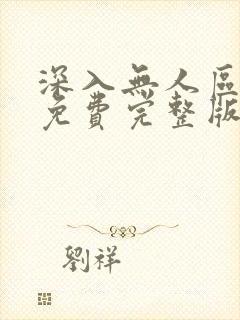 深入無人區
免費完整版
劉祥